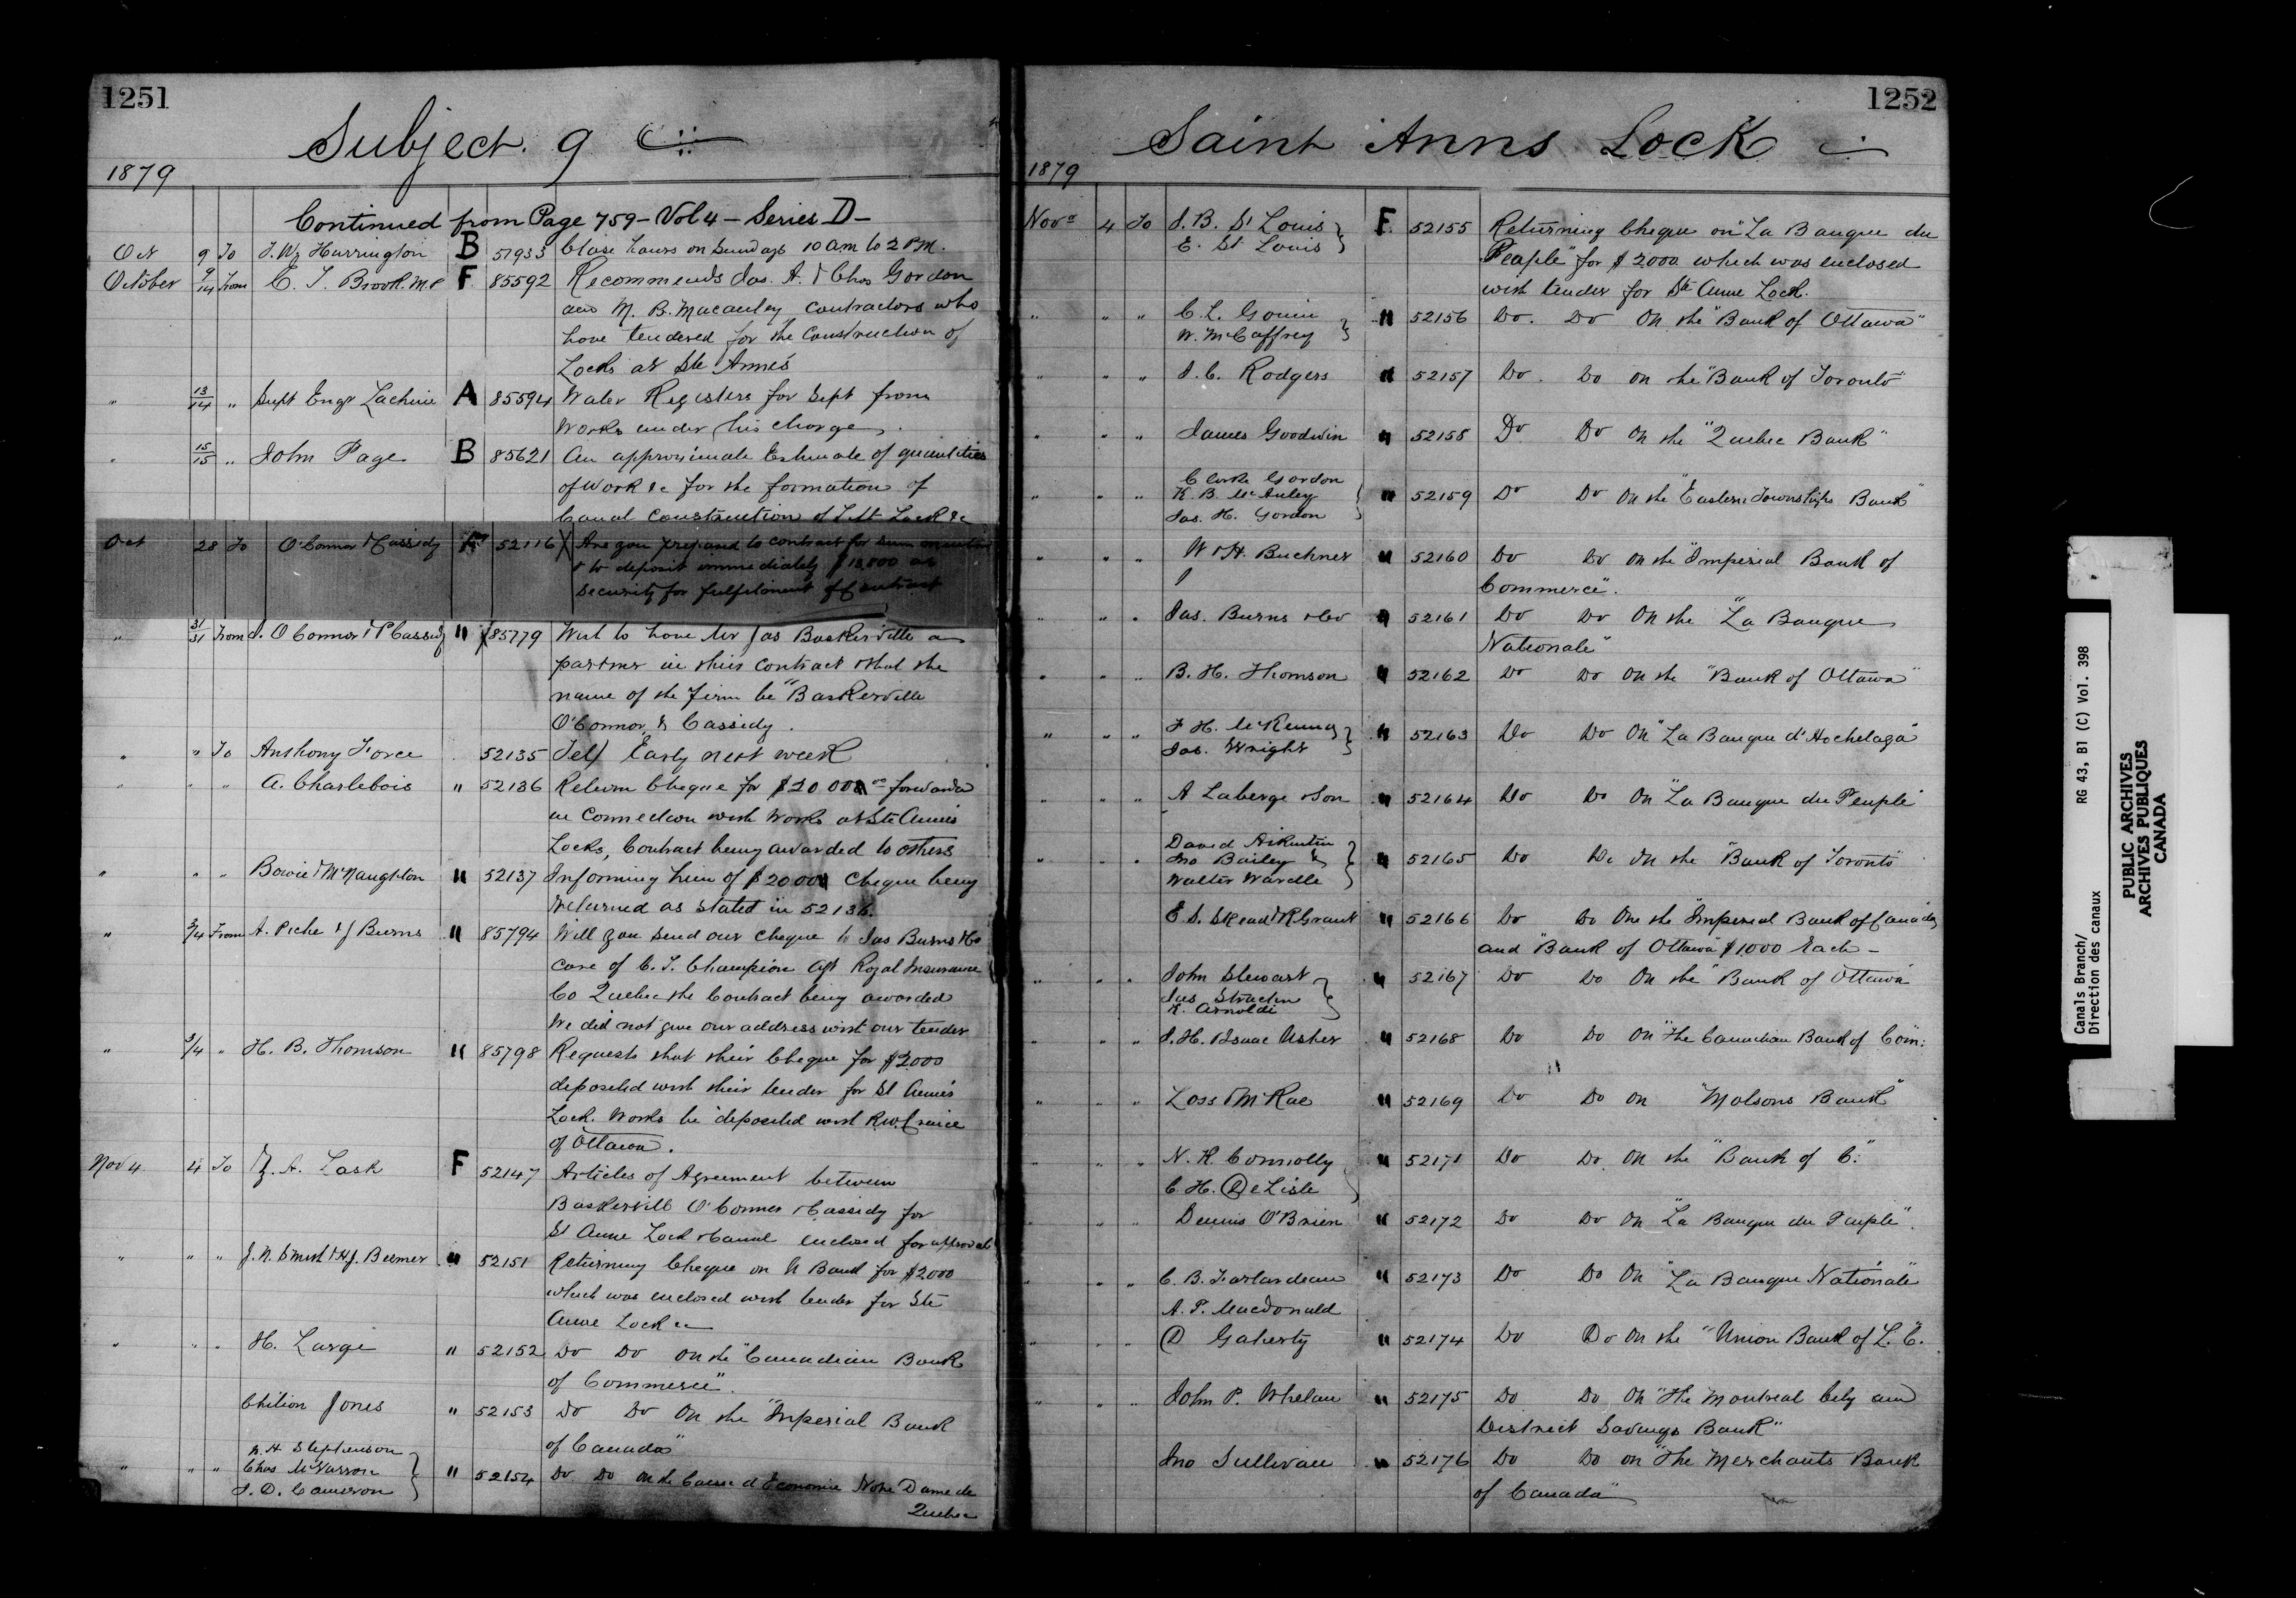 1251
Subject. 9
1879
Continued from Page 759 - Vol 4 - Series D -
Oct 9 To J. W. Harrington B 51933 Close hours on Sundays 10 am to 2 P.M.
October 9/14 From C. J. Brook. M.P F 85592 Recommends Jas. A. & Chas Gordon
and M. B. Macauley contractors who
have tendered for the Construction of
Locks at Ste Anne's
" 13/14 " Supt Engr Lachine A 85594 Water Registers for Sept from
Works under his charge.
" 15/15 " John Page B 85621 An approximate Estimate of quantities
of work &c for the formation of
Canal construction of Lift Lock &c
Oct 28 To O'Connor & Cassidy 52116 Are you prepared to contract for sum
& to deposit immediately $18,800 as
security for fulfilment of Contract
" 31/31 From J. O'Connor & P Cassidy " 85779 Wish to have Mr Jas Baskerville a
partner in their contract & that the
name of the firm be "Baskerville
O'Connor & Cassidy.
" " To Anthony Force 52135 Tel/ Early next week
" " " A. Charlebois " 52136 Return Cheque for $20 00 forwarded
in connection with Works at Ste Anne's
Locks, Contract being awarded to others
" " " Bowie & McNaughton " 52137 Informing him of $2000 Cheque being
returned as stated in 52136.
" 3/4 From A. Piche & J Burns " 85794 Will you send our cheque to Jas Burns & Co
care of C. T. Champion Agt Royal Insurance
Co Quebec the Contract being awarded
We did not give our address with our tender
" 3/4 " H. B. Thomson " 85798 Requests that their Cheque for $2000
deposited with their tender for St Anne's
Lock Works be deposited with R.W. Cruice
of Ottawa.
Nov 4 4 To Z. A. Lash F 52147 Articles of Agreement between
Baskervill O'Connor & Cassidy for
St Anne Lock & Canal enclosed for approval
" " " J. N. Smith & H.J. Beemer " 52151 Returning Cheque on N Bank for $2000
which was enclosed with tender for Ste
Anne Lock
" " " H. Large " 52152 Do Do on the "Canadian Bank
of Commerce".
Chilion Jones " 52153 Do Do On the "Imperial Bank
of Canada"
N. H Stephenson
" " " Chas McVarron " 52154 Do Do on the Caisse d Economie Notre Dame de
J. D. Cameron Quebec
1252
Saint Anns Lock
1879
Novr 4 To J. B. St Louis F 52155 Returning Cheque on "La Banque du
E. St Louis Peuple" for $2000 which was enclosed
with tender for Ste Anne Lock.
" " " C. L. Gouin " 52156 Do. Do On the "Bank of Ottawa"
W. McCaffrey
" " " J. C. Rodgers " 52157 Do. Do on the "Bank of Toronto"
" " " James Goodwin " 52158 Do Do On the "Quebec Bank"
Clarke Gordon
" " " K. B. McAuley " 52159 Do Do On the "Eastern Townships Bank"
Jas. H. Gordon
" " " W & H. Buchner " 52160 Do Do on the "Imperial Bank of
Commerce".
" " " Jas. Burns & Co " 52161 Do Do On the "La Banque
Nationale"
" " " B. H. Thomson " 52162 Do Do On the "Bank of Ottawa"
" " " F H. McKenna " 52163 Do Do On "La Banque d'Hochelaga"
Jas. Wright
" " " A Laberge & Son " 52164 Do Do On "La Banque du Peuple"
David
" " " Jno Bailey & " 52165 Do Do On the "Bank of Toronto"
Walter
E. S. Skead & R Grant " 52166 Do Do One the "Imperial Bank of Canada"
and "Bank of Ottawa" $1000 Each -
" " " John Stewart " 52167 Do Do On the "Bank of Ottawa"
Jas Strachn
K. Arnoldi
" " " J. H. & Isaac Usher " 52168 Do Do On "The Canadian Bank of Com:
" " " Loss & McRae " 52169 Do Do on "Molsons Bank"
" " " N. K. Connolly " 52171 Do Do. On the "Bank of C."
C. H. DeLisle
" " " Dennis O'Brien " 52172 Do Do On "La Banque du Peuple".
" " " C. B. " 52173 Do Do On "La Banque Nationale"
A. P. Macdonald
" " " D Gaherty " 52174 Do Do On the "Union Bank of L. C.
" " " John P. Whelan " 52175 Do Do On "The Montreal City and
District Savings Bank"
Jno Sullivan " 52176 Do Do on "The Merchants Bank
of Canada"
Canals Branch/
Direction des canaux
RG 43, B1 (C) Vol. 398
PUBLIC ARCHIVES
ARCHIVES PUBLIQUES
CANADA